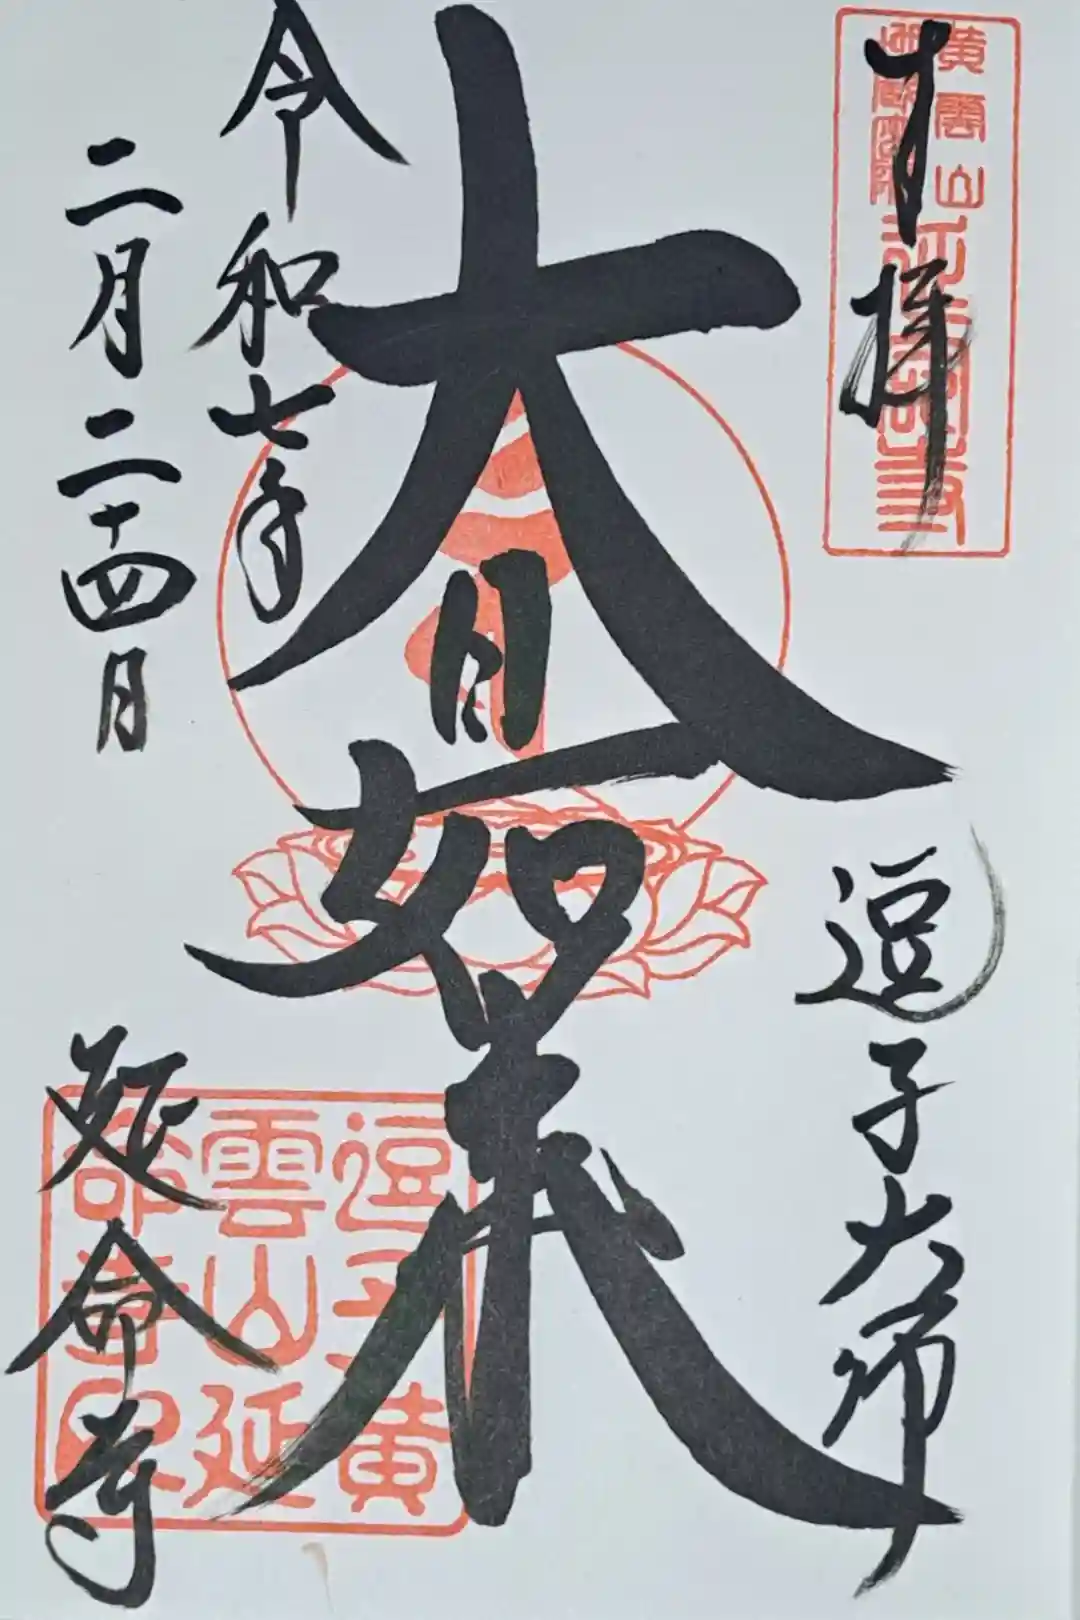 奉拝
黄雲山
地蔵密院
延命寺
逗子大師
大日如来
令和七年
二月二十四日
延命寺
逗子黄
雲山延
命寺印